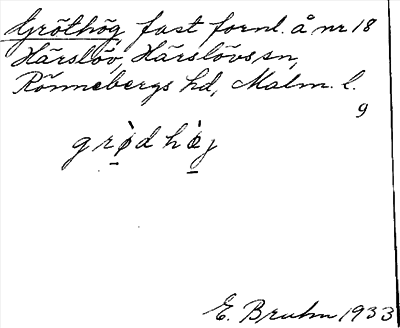 Gröthög fast fornl. å nr 18
Härslöv, Härslövs sn,
Rönnebergs hd, Malm. l.
9
grø̠̀d hœ̠̀j
E. Bruhn 1933